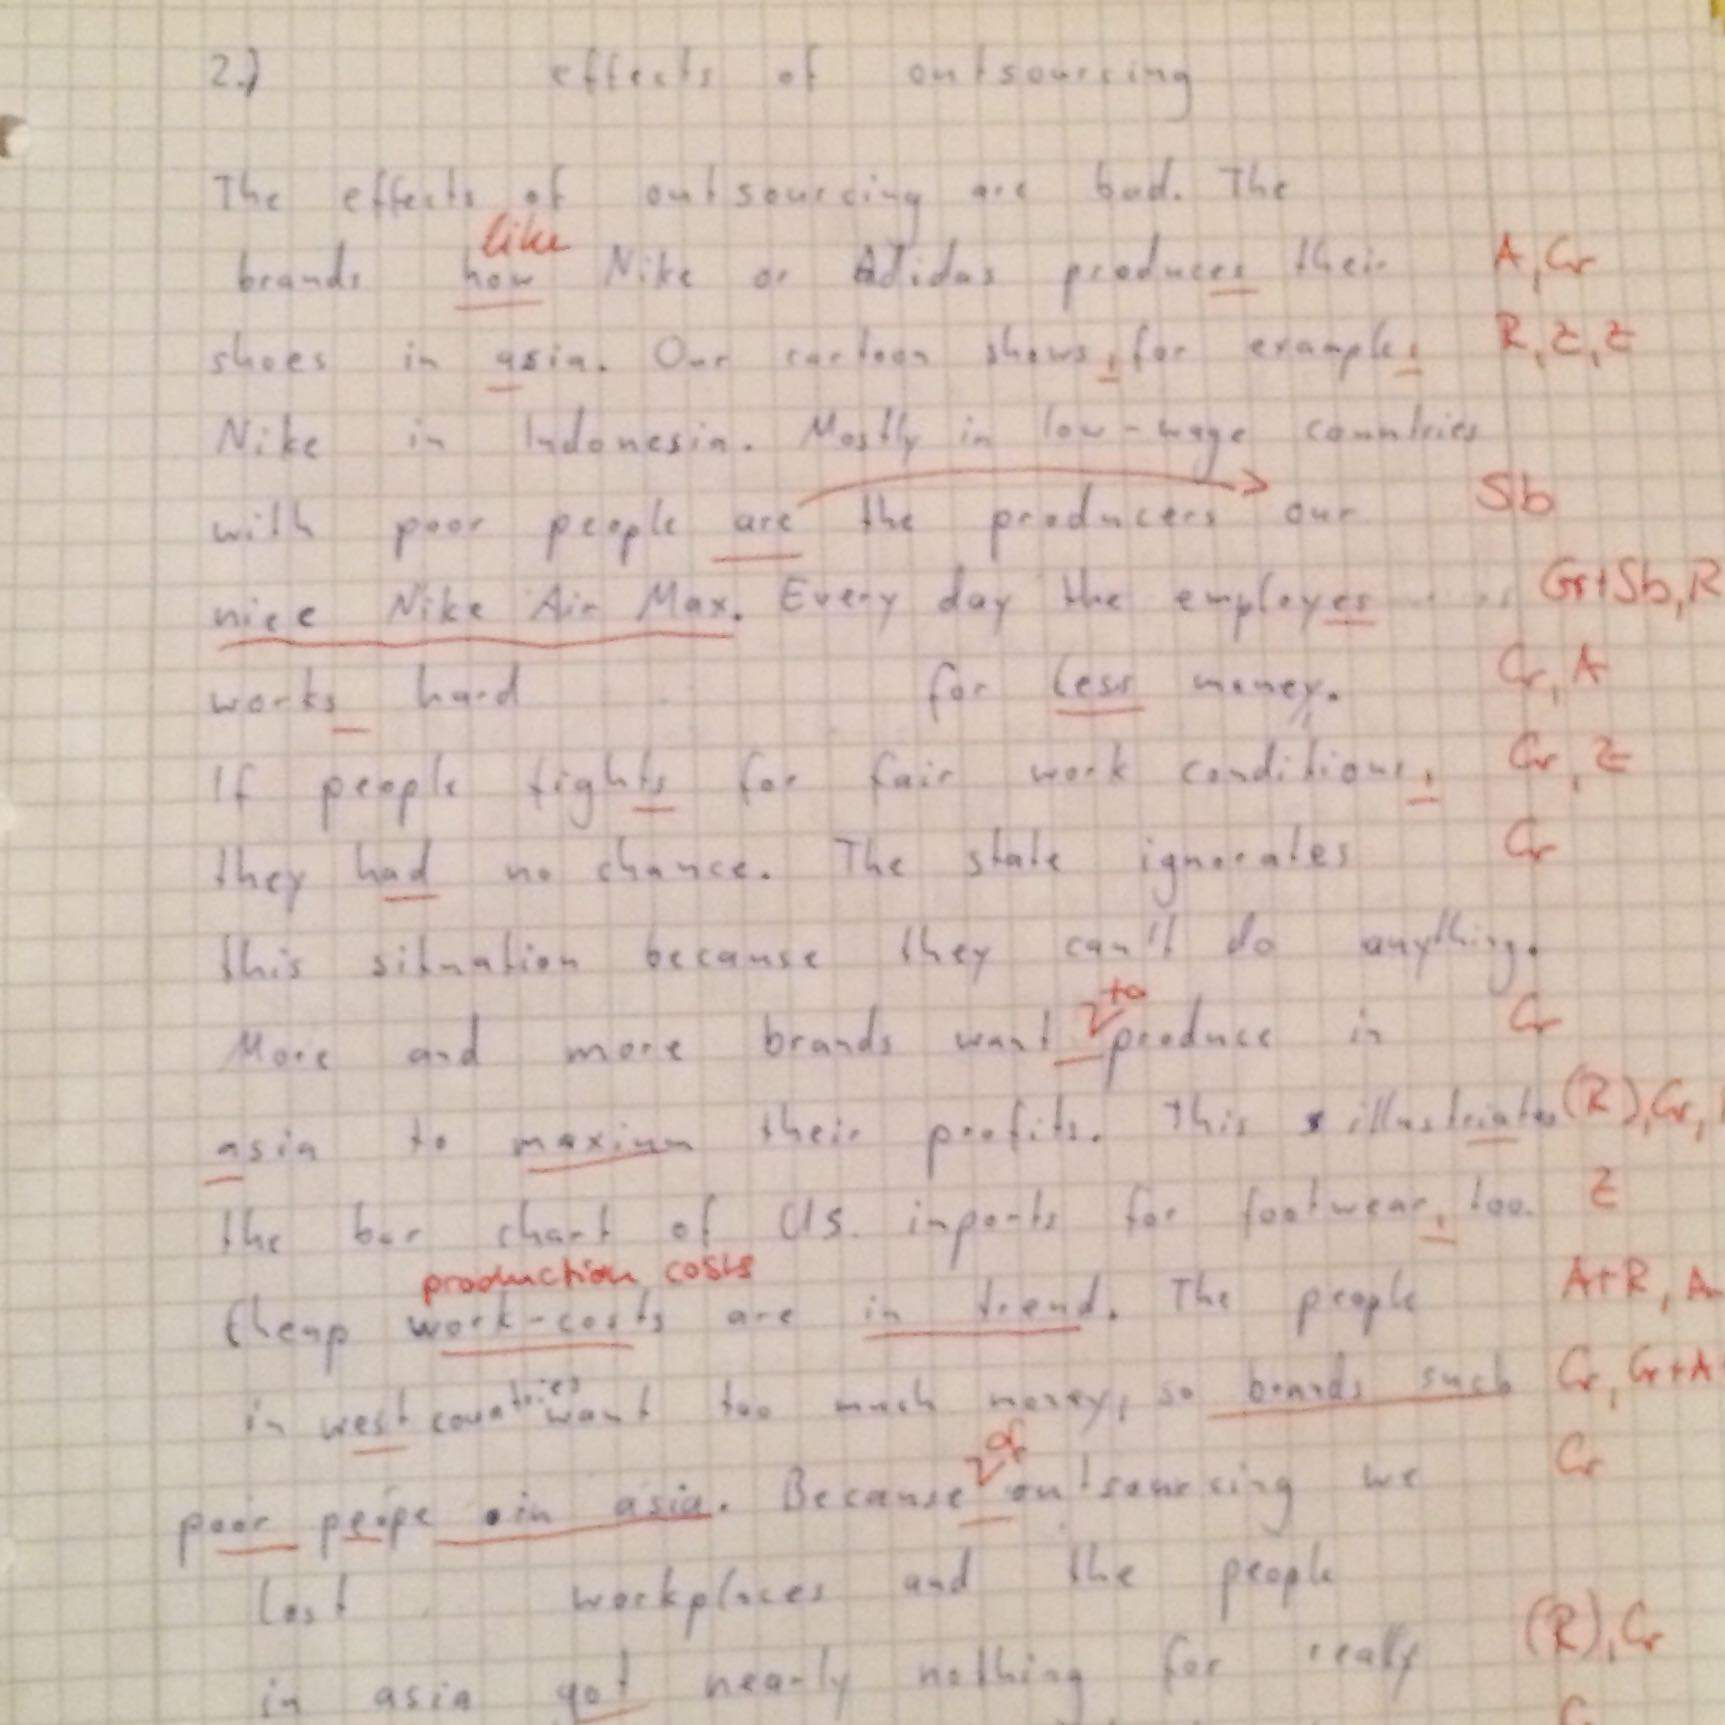 2.) effects of outsourcing
The effects of outsourcing are bad. The
like
brands how Nike or Adidas produces their A, Gr
shoes in asia. Our cartoon shows, for example, R, Z, Z
Nike in Indonesia. Mostly in low-wage countries
with poor people are the producers our Sb
nice Nike Air Max. Every day the employes Gr+Sb, R
works hard for less money. Gr, A
If people fights for fair work conditions, Gr, Z
they had no chance. The state ignorates Gr
this situation because they can't do anything.
to
More and more brands want produce in Gr
asia to maximum their profits. This illustriates (R), Gr,
the bar chart of US. imports for footwear, too. Z
production costs
Cheap work-costs are in trend. The people A+R, A
in west countries want too much money, so brands such Gr, Gr+A
of
poor peope in asia. Because outsourcing we Gr
lost workplaces and the people
in asia got nearly nothing for really (R), Gr